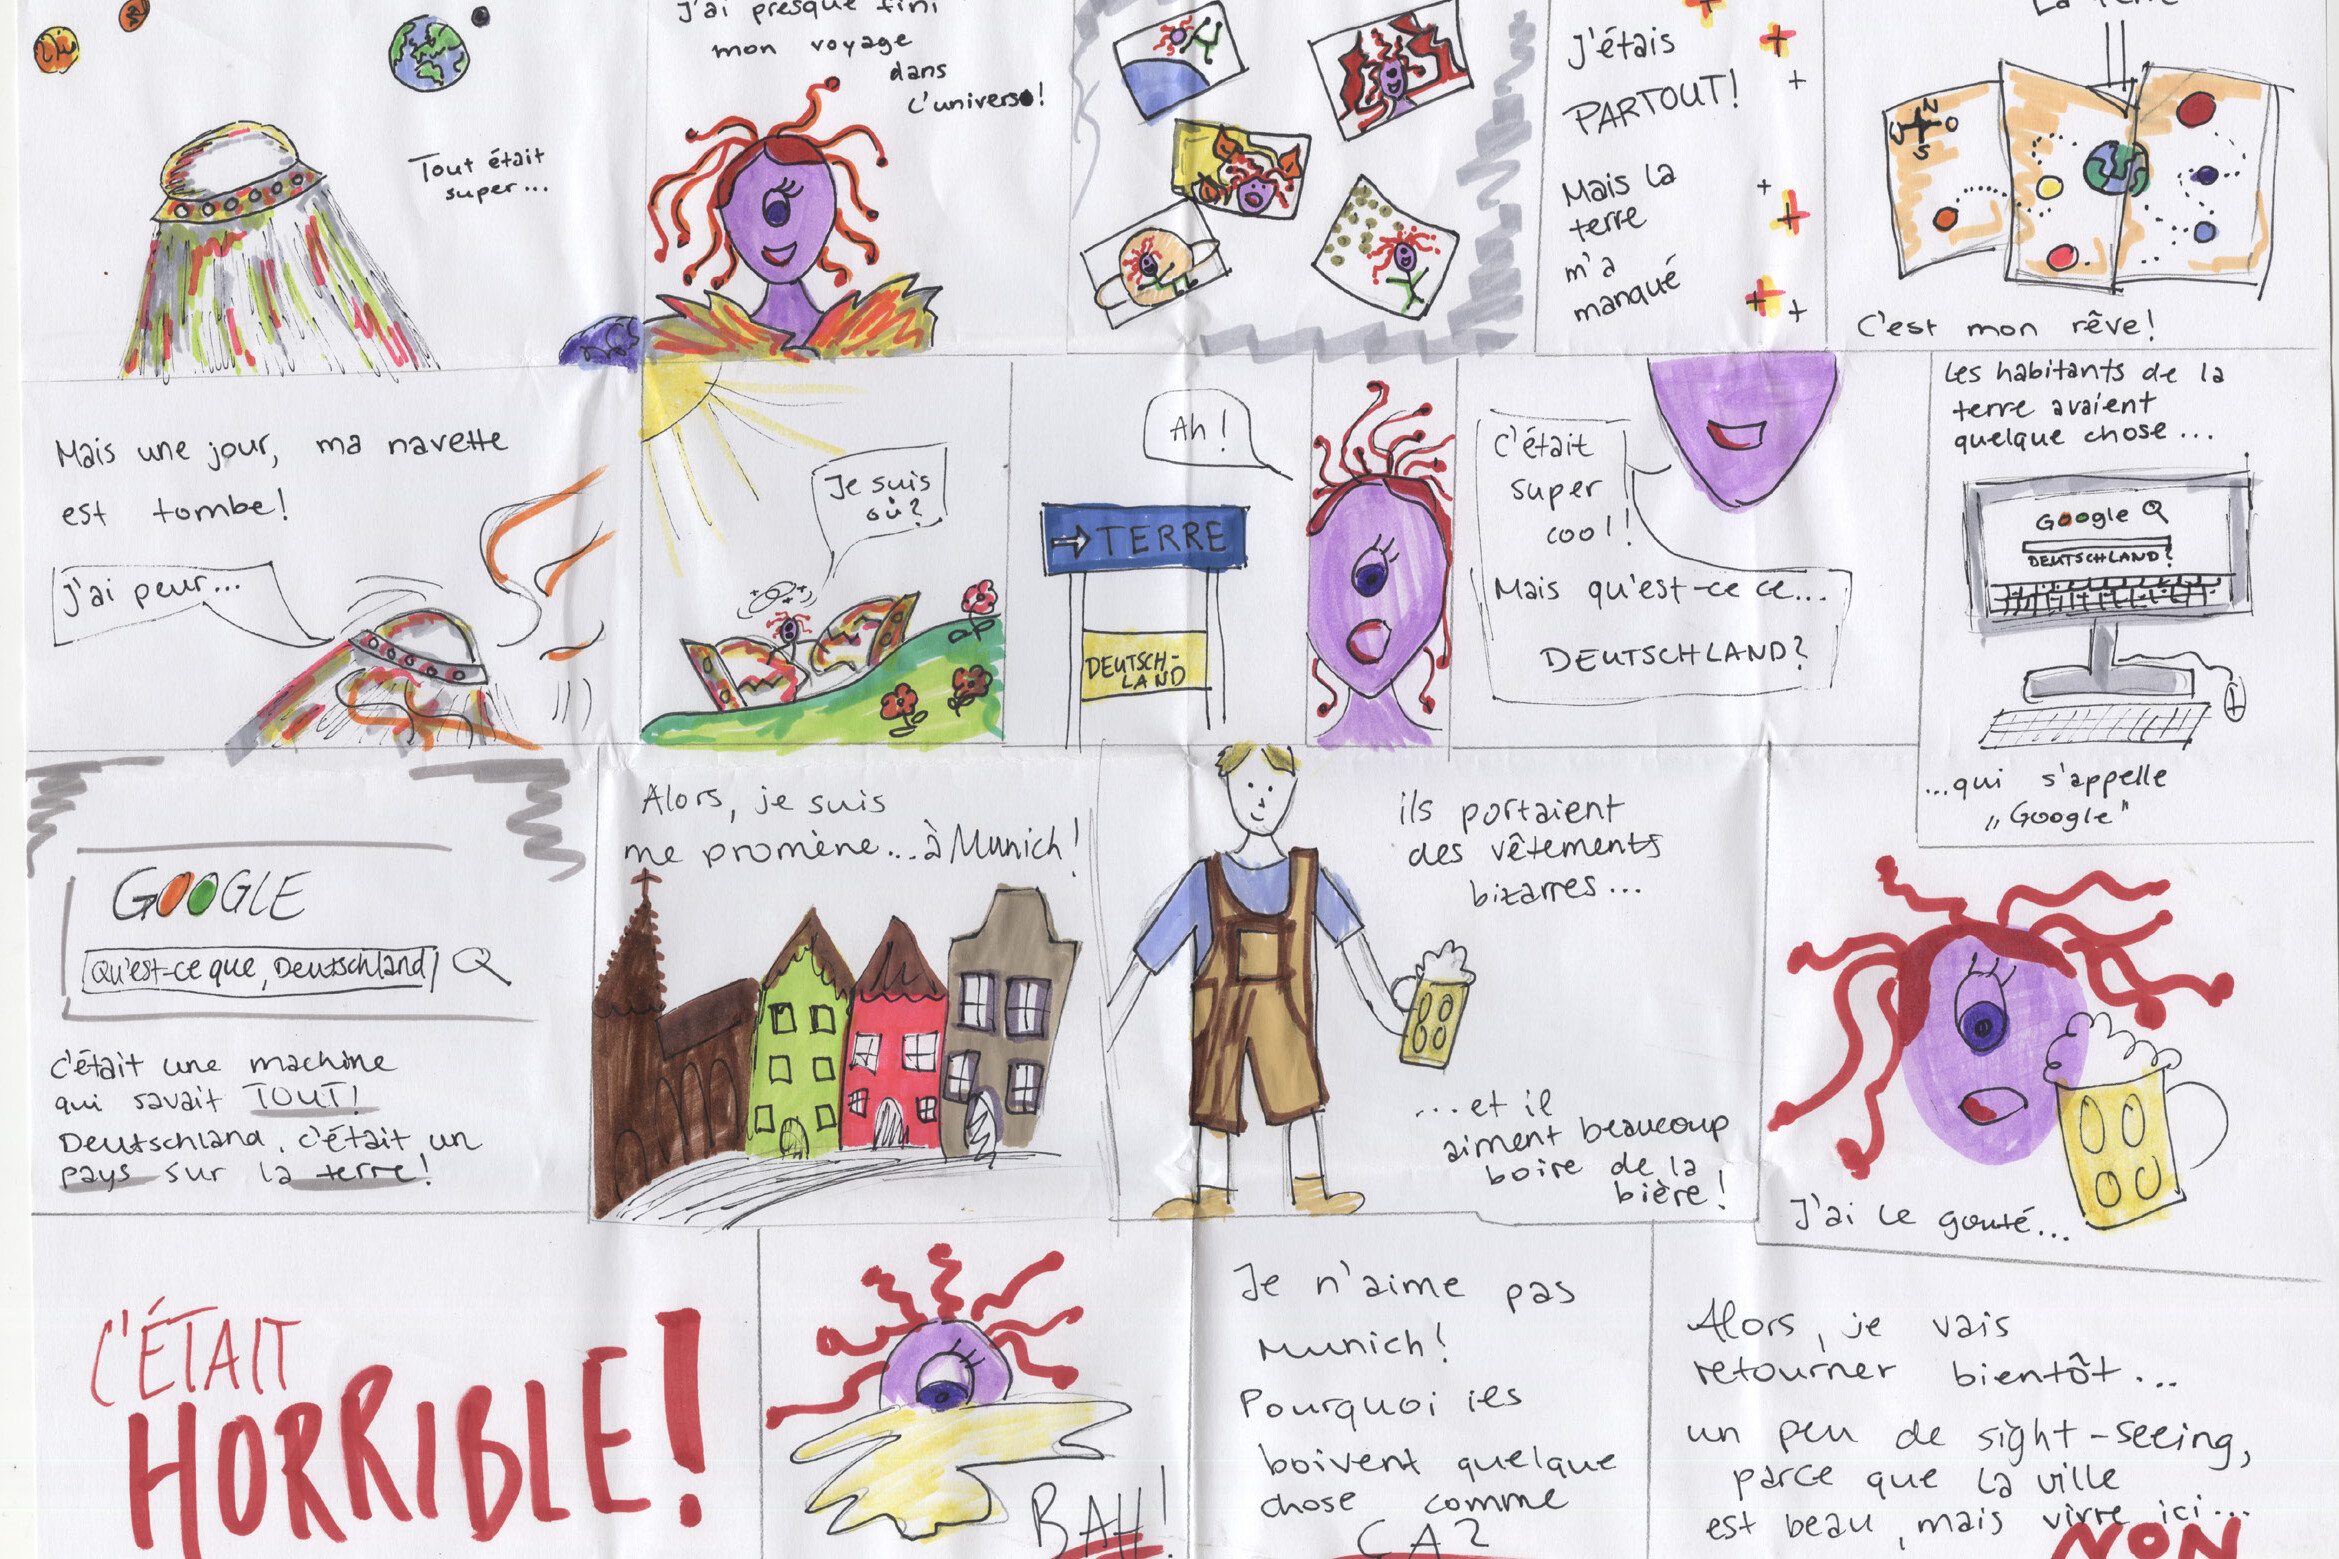 Tout était
super...
J'ai presque fini
mon voyage
dans
l'univers!
J'étais
PARTOUT!
Mais la
terre
m'a
manqué
La Terre
N
O
S
C'est mon rêve!
Mais une jour, ma navette
est tombe!
J'ai peur...
Je suis
où?
Ah!
→TERRE
DEUTSCH-
LAND
C'était
super
cool!
Mais qu'est-ce ce...
DEUTSCHLAND?
Les habitants de la
terre avaient
quelque chose...
Google
DEUTSCHLAND?
...qui s'appelle
„Google"
GOOGLE
Qu'est-ce que, Deutschland
c'était une machine
qui savait TOUT!
Deutschland, c'était un
pays sur la terre!
Alors, je suis
me promène...à Munich!
ils portaient
des vêtements
bizarres...
...et il
aiment beaucoup
boire de la
bière!
J'ai le gouté...
C'ÉTAIT
HORRIBLE!
BAH!
Je n'aime pas
Munich!
Pourquoi ils
boivent quelque
chose comme
ÇA?
Alors, je vais
retourner bientôt...
un peu de sight-seeing,
parce que la ville
est beau, mais vivre ici...
NON